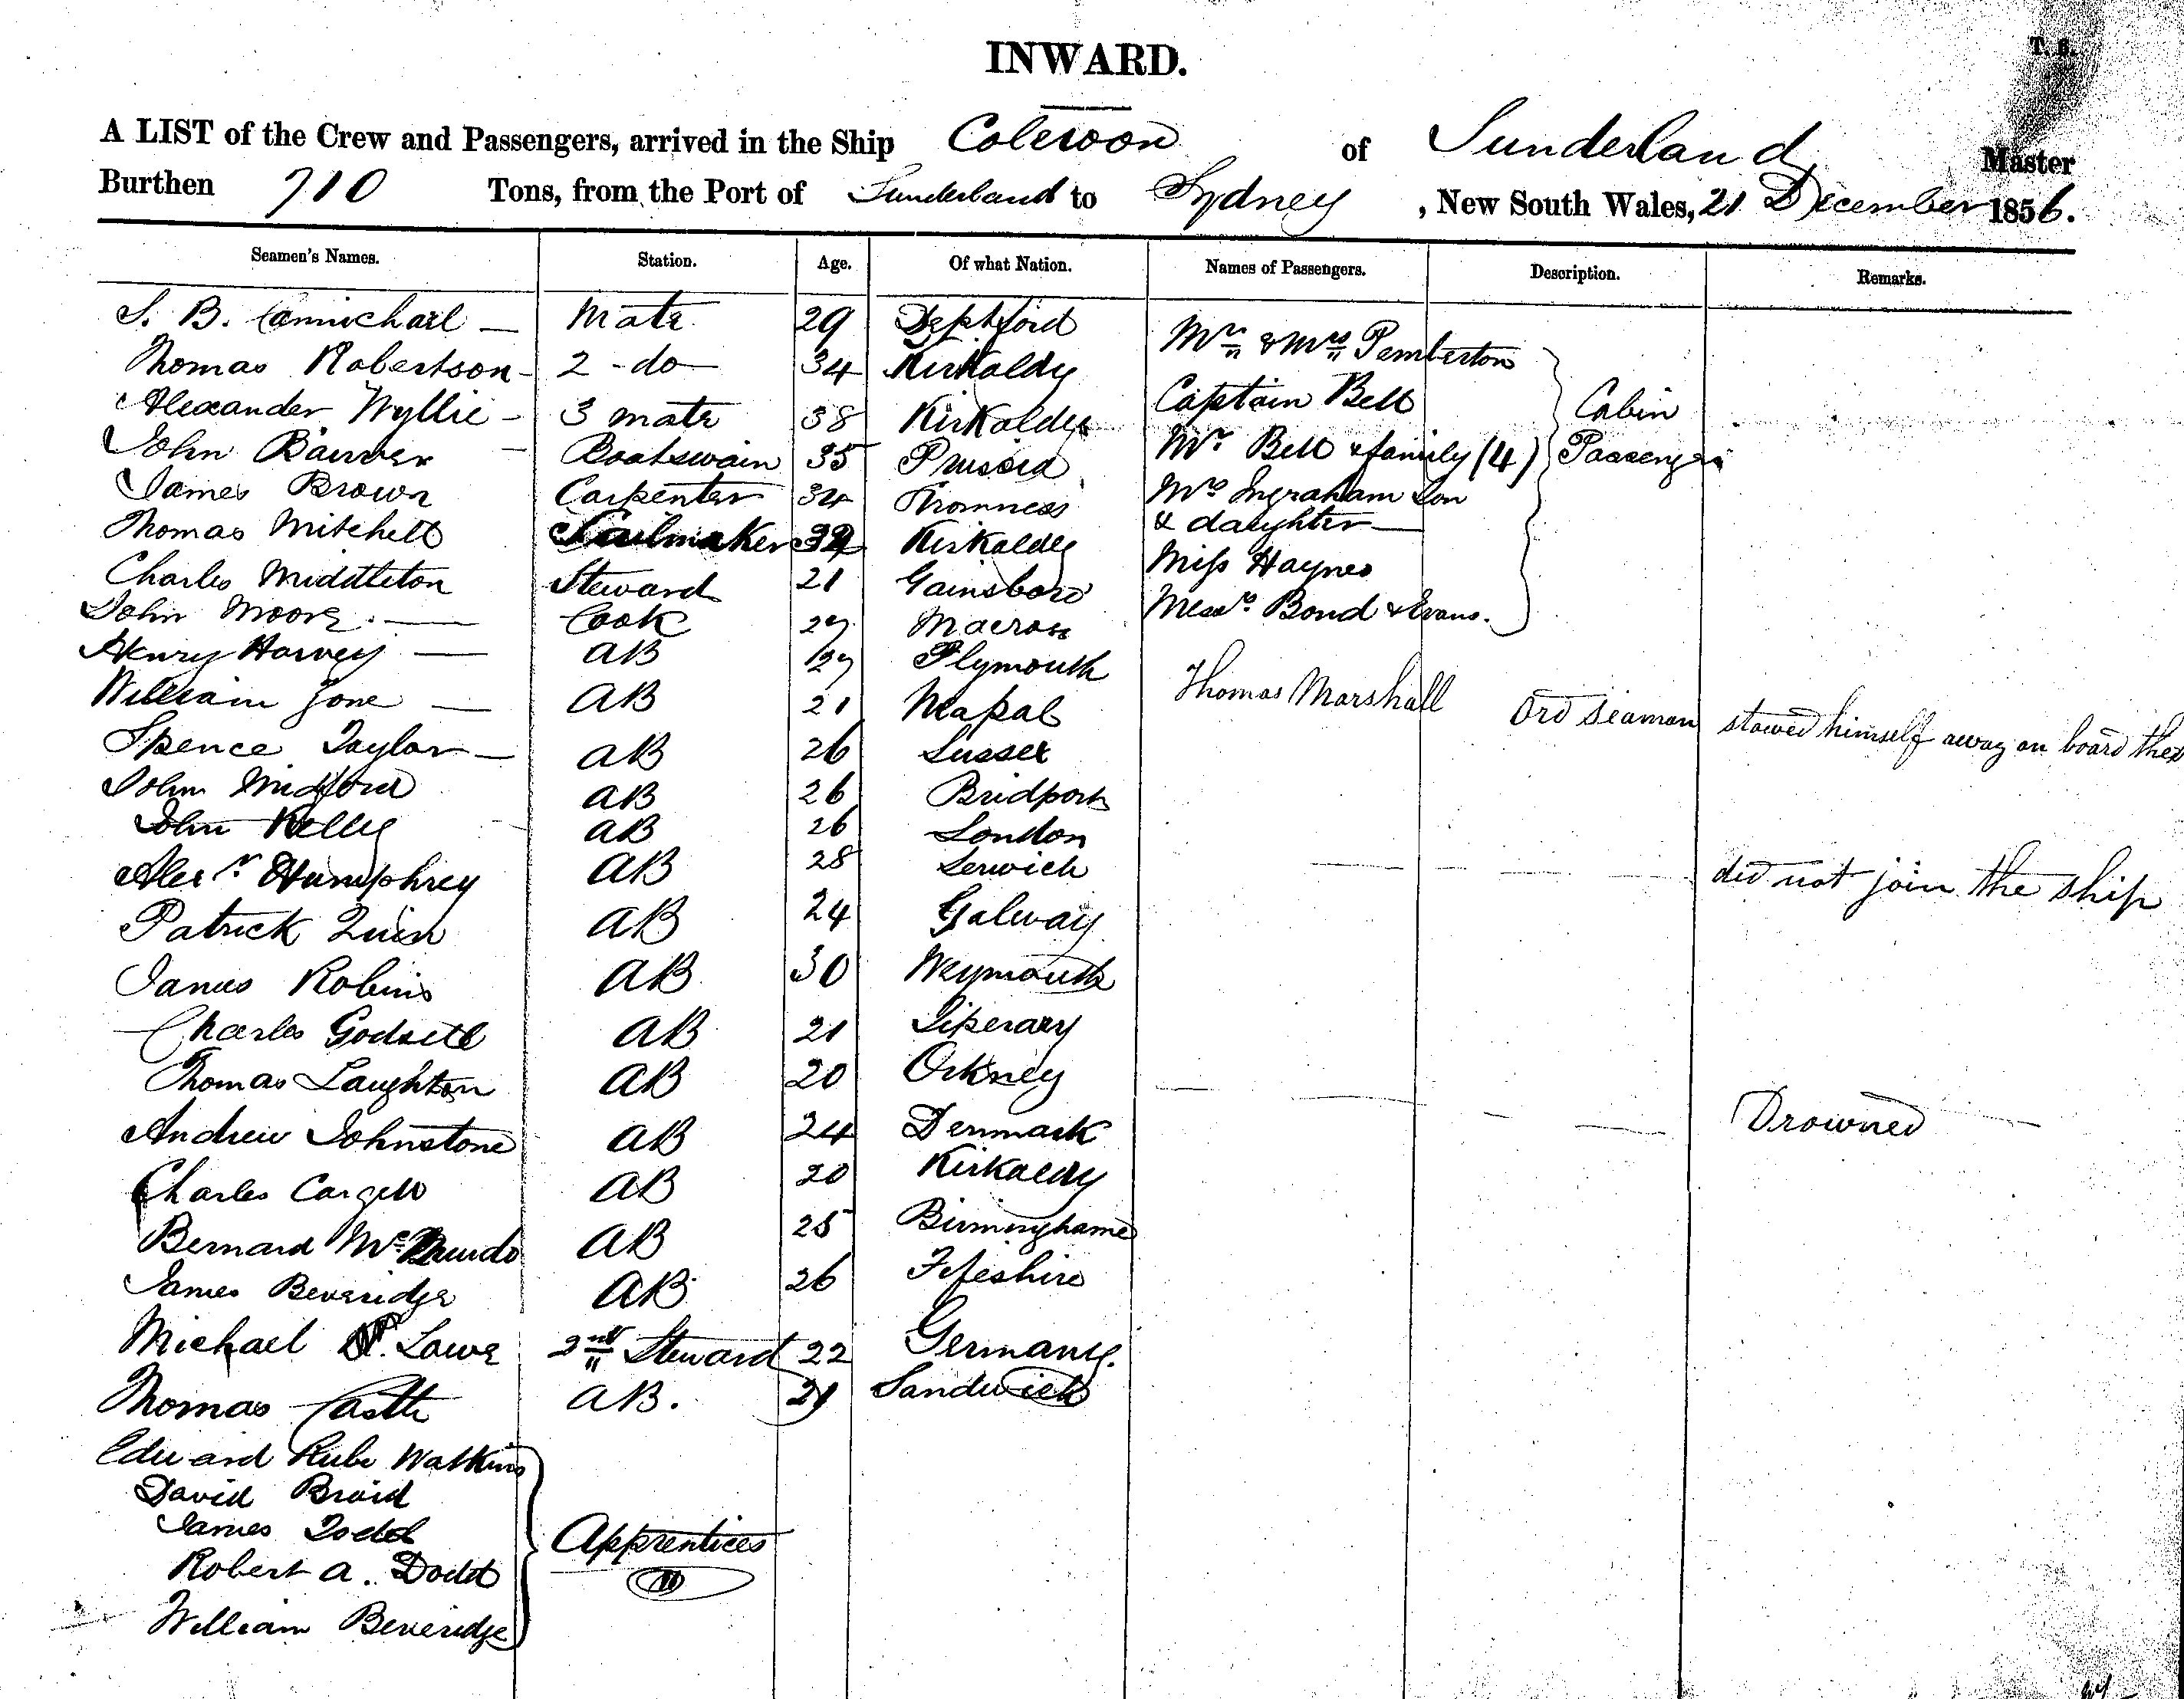 T. B.
INWARD.
A LIST of the Crew and Passengers, arrived in the Ship Coleroon of Sunderland Master
Burthen 710 Tons, from the Port of Sunderland to Sydney , New South Wales, 21 December 1856.
Seamen's Names. Station. Age. Of what Nation. Names of Passengers. Description. Remarks.
S. B. Carmichael — Mate 29 Deptford
Mr & Mrs Pemberton
Thomas Robertson - 2 - do 34 Kirkaldy
Captain Bell Cabin
Alexander Wyllie - 3 mate 38 Kirkaldy
Mr Bell & family (4) Passengers
John - Boatswain 35 Prussia
Mrs Ingraham Son
James Brown Carpenter 34 Stromness
& daughter —
Thomas Mitchell Sailmaker Kirkaldy
Miss Haynes
Charles Middleton Steward 21 Gainsboro
Messrs Bond & Evans.
John Moore. — Cook 29
Henry Harvey — AB 29 Plymouth
William Jone — AB 21
Thomas Marshall Ord Seaman stowed himself away on board the
Spence Taylor — AB 26 Sussex
John Midford AB 26 Bridport
John Kelly AB 26 London
Alexr Humphrey AB 28 Lerwick did not join the ship
Patrick Quin AB 24 Galway
James Robins AB 30 Weymouth
Charles Godsell AB 21 Tiperary
Thomas Laughton AB 20 Orkney
Andrew Johnstone AB 24 Denmark Drowned
Charles Cargill AB 20 Kirkaldy
Bernard AB 25 Birminghame
James Beveridge AB 26 Fifeshire
Michael Lowe 2nd Steward 22 Germany.
Thomas Castle AB. 21 Sandwich
Edward Watkins
David Braid
James Todd
Apprentices
Robert A. Dodd
William Beveridge